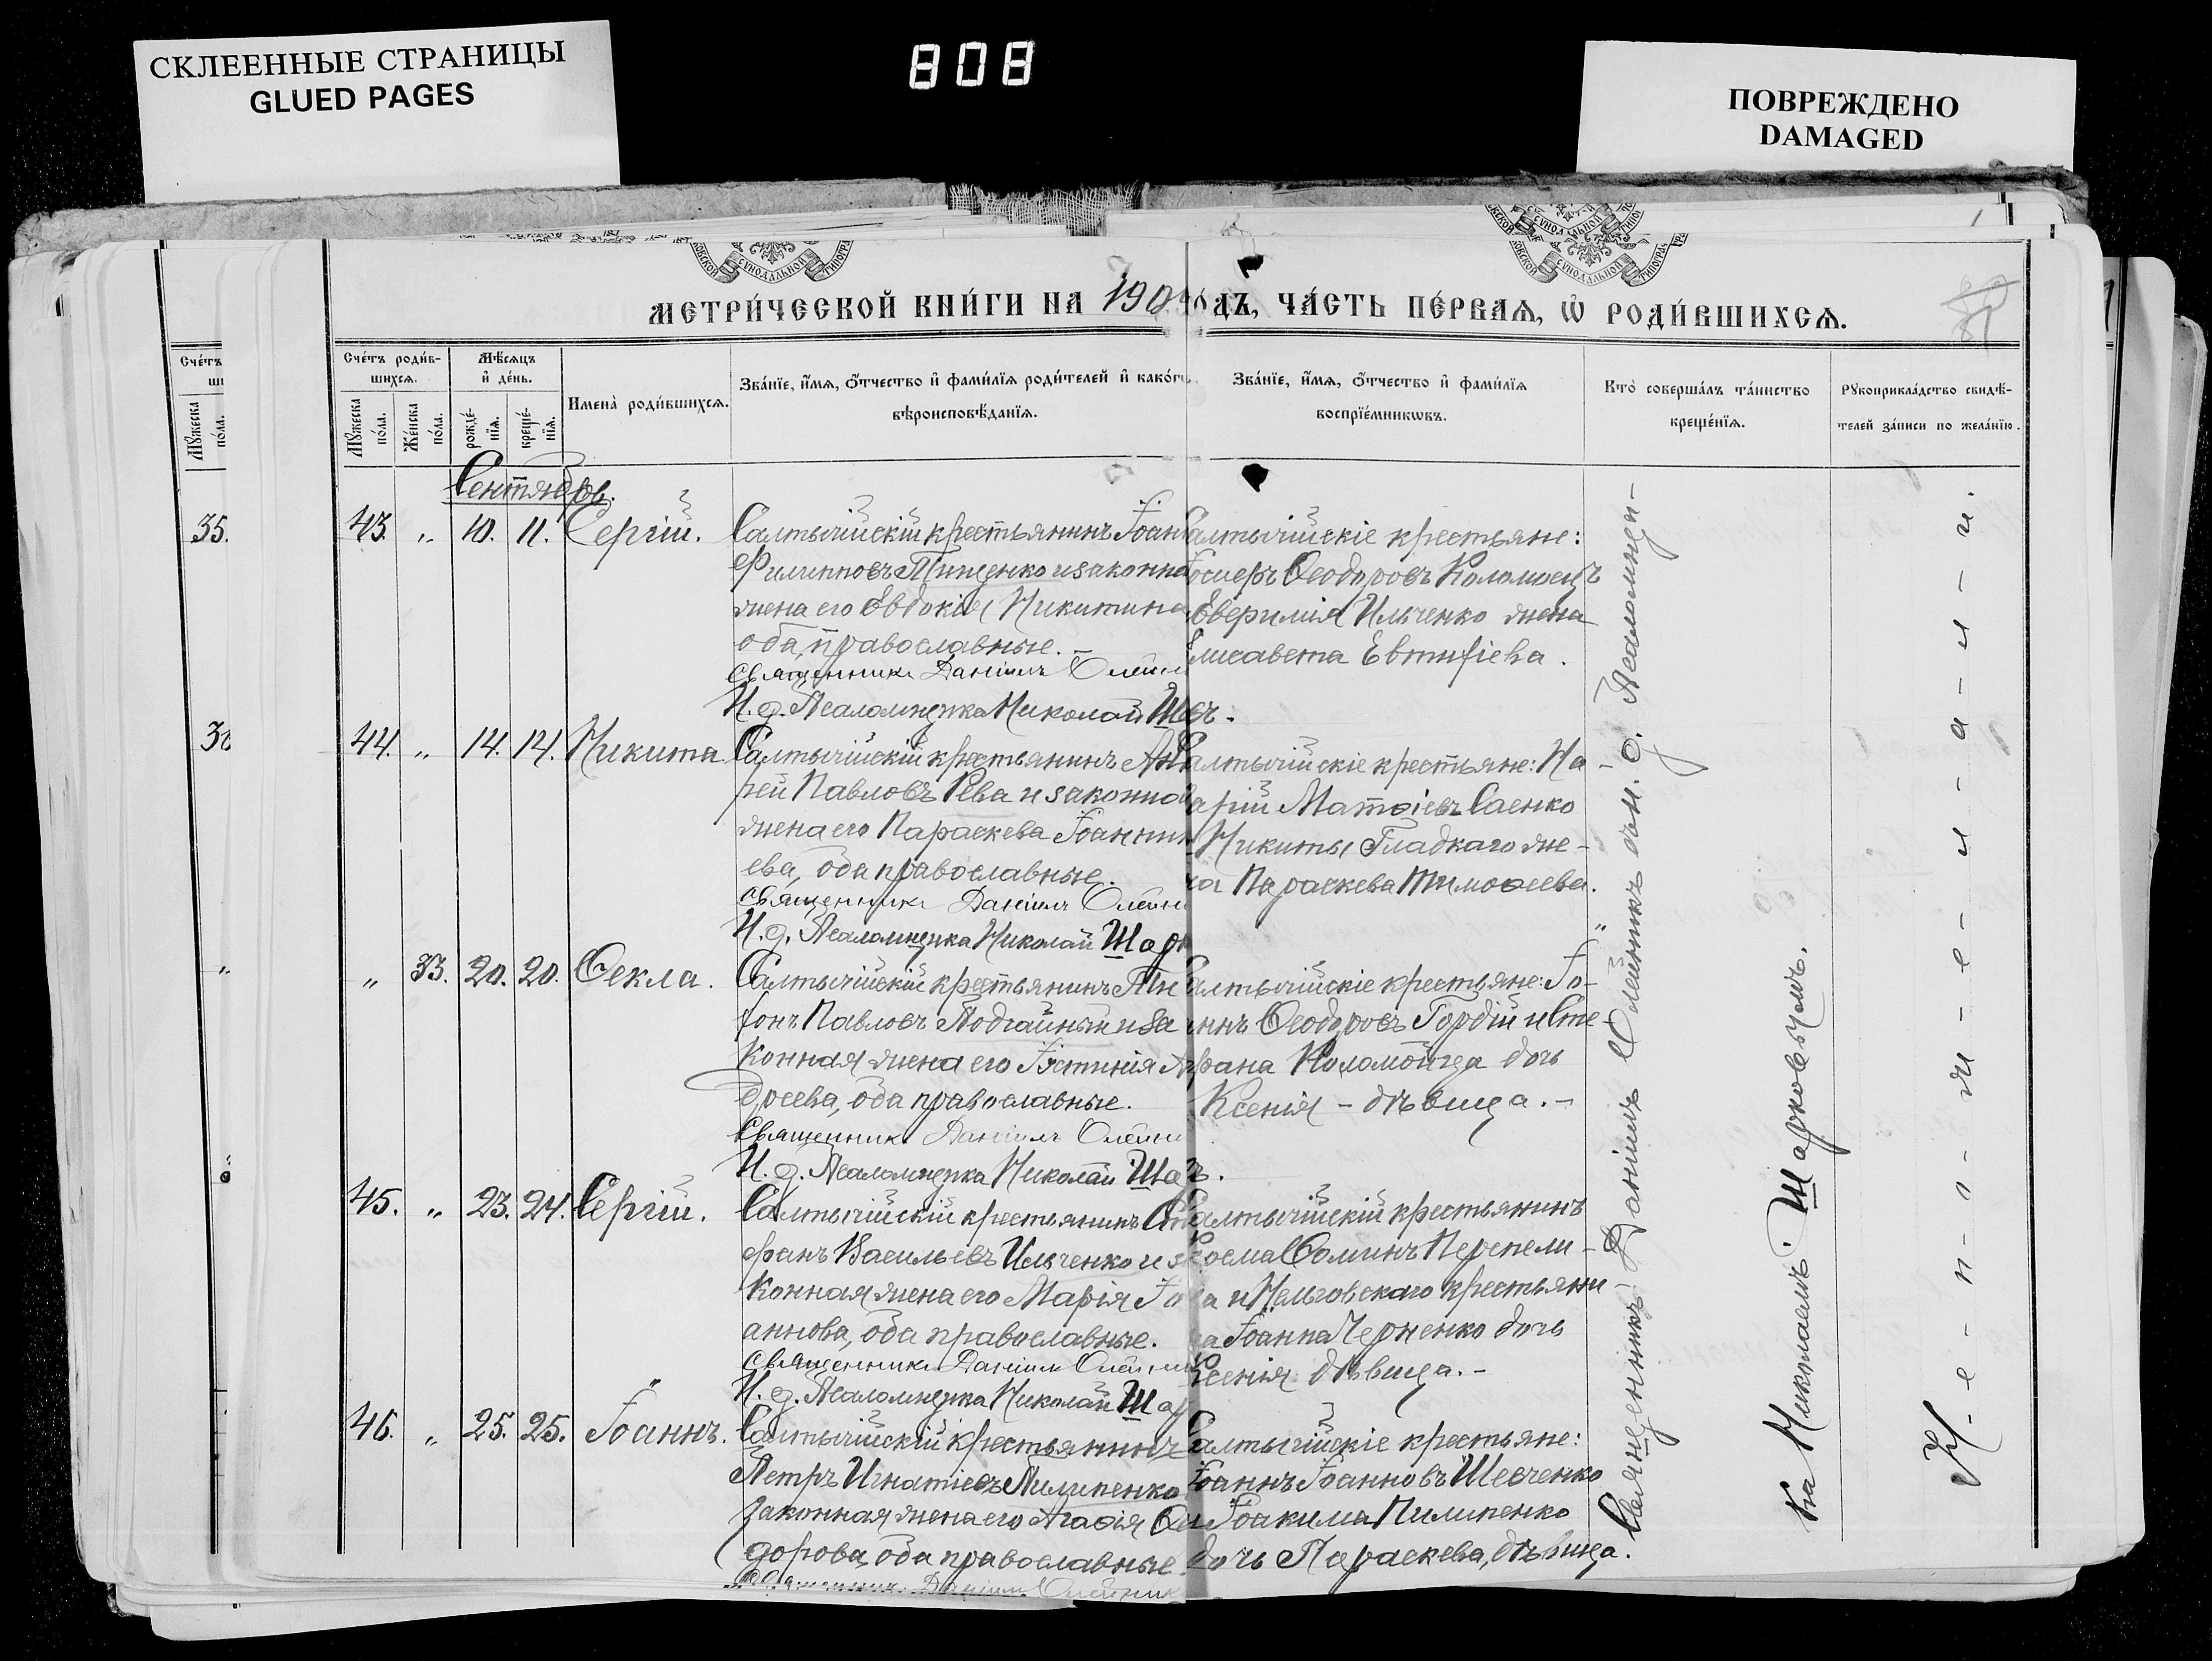 СКЛЕЕННЫЕ СТРАНИЦЫ
GLUED PAGES
808
ПОВРЕЖДЕНО
DAMAGED
МЕТРИ́ЧЕСКОЙ КНИ́ГИ НА 190 ДЪ, ЧА́СТЬ ПЕ́РВАЯ, Ѡ҆ РОДИ́ВШИХСЯ.
Сче́тъ
Му́жеска по́ла.
Сче́тъ роди́в-
шихся.
Му́жеска по́ла.
Же́нска по́ла.
Мѣ́сяцъ
и҆ де́нь.
рожде́нїя.
креще́нїя.
Имена̀ роди́вшихся.
Зва́нїе, и҆́мя, ѻ҆́тчество и҆ фами́лїя роди́телей и҆ како́гѡ
вѣроисповѣ́данїя.
Зва́нїе, и҆́мя, ѻ҆́тчество и҆ фами́лїя
воспрїе́мникѡвъ.
Кто̀ соверша́лъ та́инство
креще́нїя.
Рꙋкоприкла́дство свидѣ́-
телей за́писи по жела́нїю.
Сентябрь.
35.
43. „ 10. 11. Сергій.
Салтычійскій крестьянинъ Іоан
Филипповъ Тищенко и законна
жена его Евдокія Никитина
оба православные. –
Священникъ Даніилъ Олейн
И. д. Псаломщика Николай Ш
алтычійскіе крестьяне:
осифъ Ѳеодоровъ Коломоецъ
Евфимія Ильченко жена
Елисавета Евтифіева.
44. „ 14. 14. Никита.
Салтычійскій крестьянинъ Ан
рей Павловъ Рева и законна
жена его Параскева Іоанни
ева, оба православные.
Священникъ Даніилъ Олейн
И. д. Псаломщика Николай Шар
алтычійскіе крестьяне: На-
арій Матѳіевъ Саенко
Никиты Гладкаго же-
на Параскева Тимоѳеева.
„ 33. 20. 20. Ѳекла.
Салтычійскій крестьянинъ Ти
фонъ Павловъ Подгайный и за
конная жена его Іустинія Ан
дреева, оба православные.
Священникъ Даніилъ Олейни
И. д. Псаломщика Николай Ша
алтычійскіе крестьяне: Іо-
ннъ Ѳеодоровъ Гордій и Сте-
фана Коломойца дочь
Ксенія – дѣвица. –
45. „ 23. 24. Сергій.
Салтычійскій крестьянинъ Сте
фанъ Васильевъ Ильченко и за
конная жена его Марія Іо
аннова, оба православные.
Священникъ Даніилъ Олейник
И. д. Псаломщика Николай Шар
алтычійскій крестьянинъ
Косма Ѳоминъ Перепели-
ца и Нельговскаго крестьяни
на Іоанна Черненко дочь
Ксенія дѣвица. –
46. „ 25. 25. Іоаннъ.
Салтычійскій крестьянинъ
Петръ Игнатіевъ Пилипенко
законная жена его Агаѳія Ѳео
дорова, оба православные
Священникъ Даніилъ Олейник
Салтычійскіе крестьяне:
Іоаннъ Іоанновъ Шевченко
Іоакима Пилипенко
дочь Параскева, дѣвица.
Священникъ Даніилъ Олейникъ съ и. д. Псаломщи-
ка Николаемъ Шарковымъ.
Н-е-п-о-ж-е-л-а-л-и.